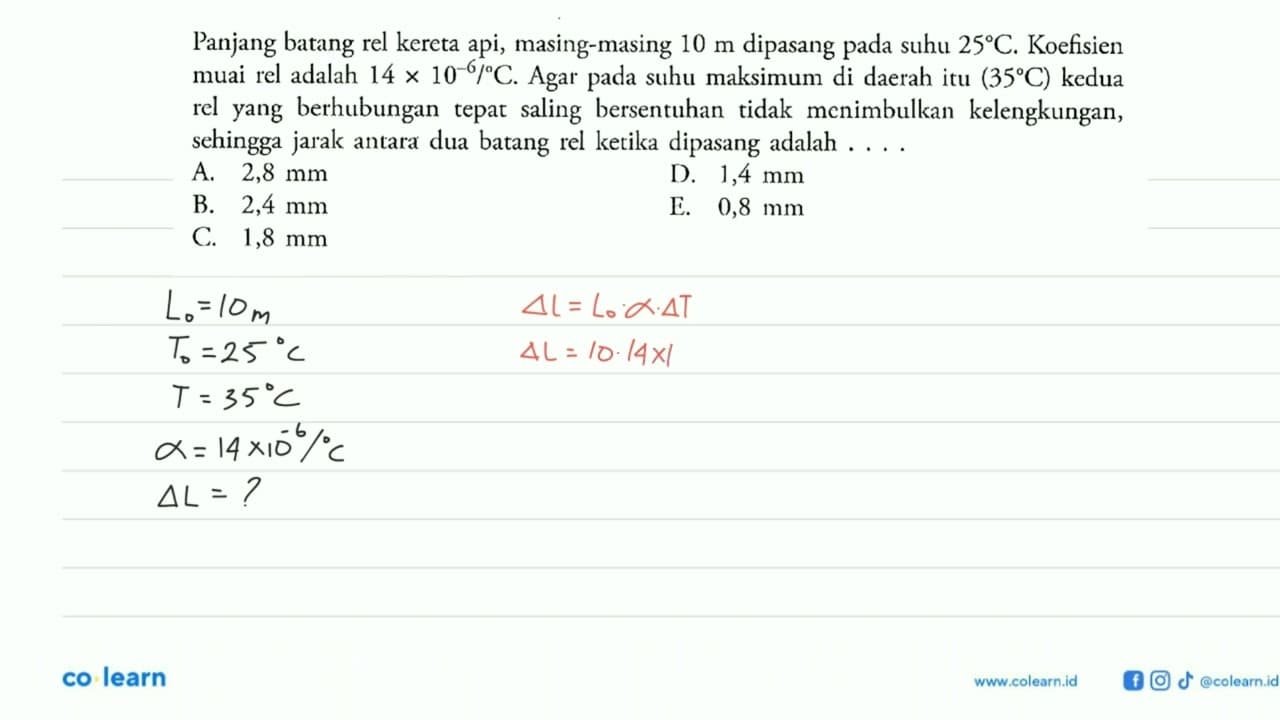 Panjang batang rel kereta api, masing-masing 10 m dipasang pada suhu 25°C. Koefisien
muai rel adalah 14 × 10⁻⁶/°C. Agar pada suhu maksimum di daerah itu (35°C) kedua
rel yang berhubungan tepat saling bersentuhan tidak menimbulkan kelengkungan,
sehingga jarak antara dua batang rel ketika dipasang adalah . . . .
A. 2,8 mm
B. 2,4 mm
C. 1,8 mm
D. 1,4 mm
E. 0,8 mm
L₀ = 10 m
T₀ = 25 °C
T = 35°C
α = 14 × 10⁻⁶/°C
ΔL = ?
Δl = L₀ · α · ΔT
ΔL = 10 · 14 × 1
co learn
www.colearn.id
@colearn.id